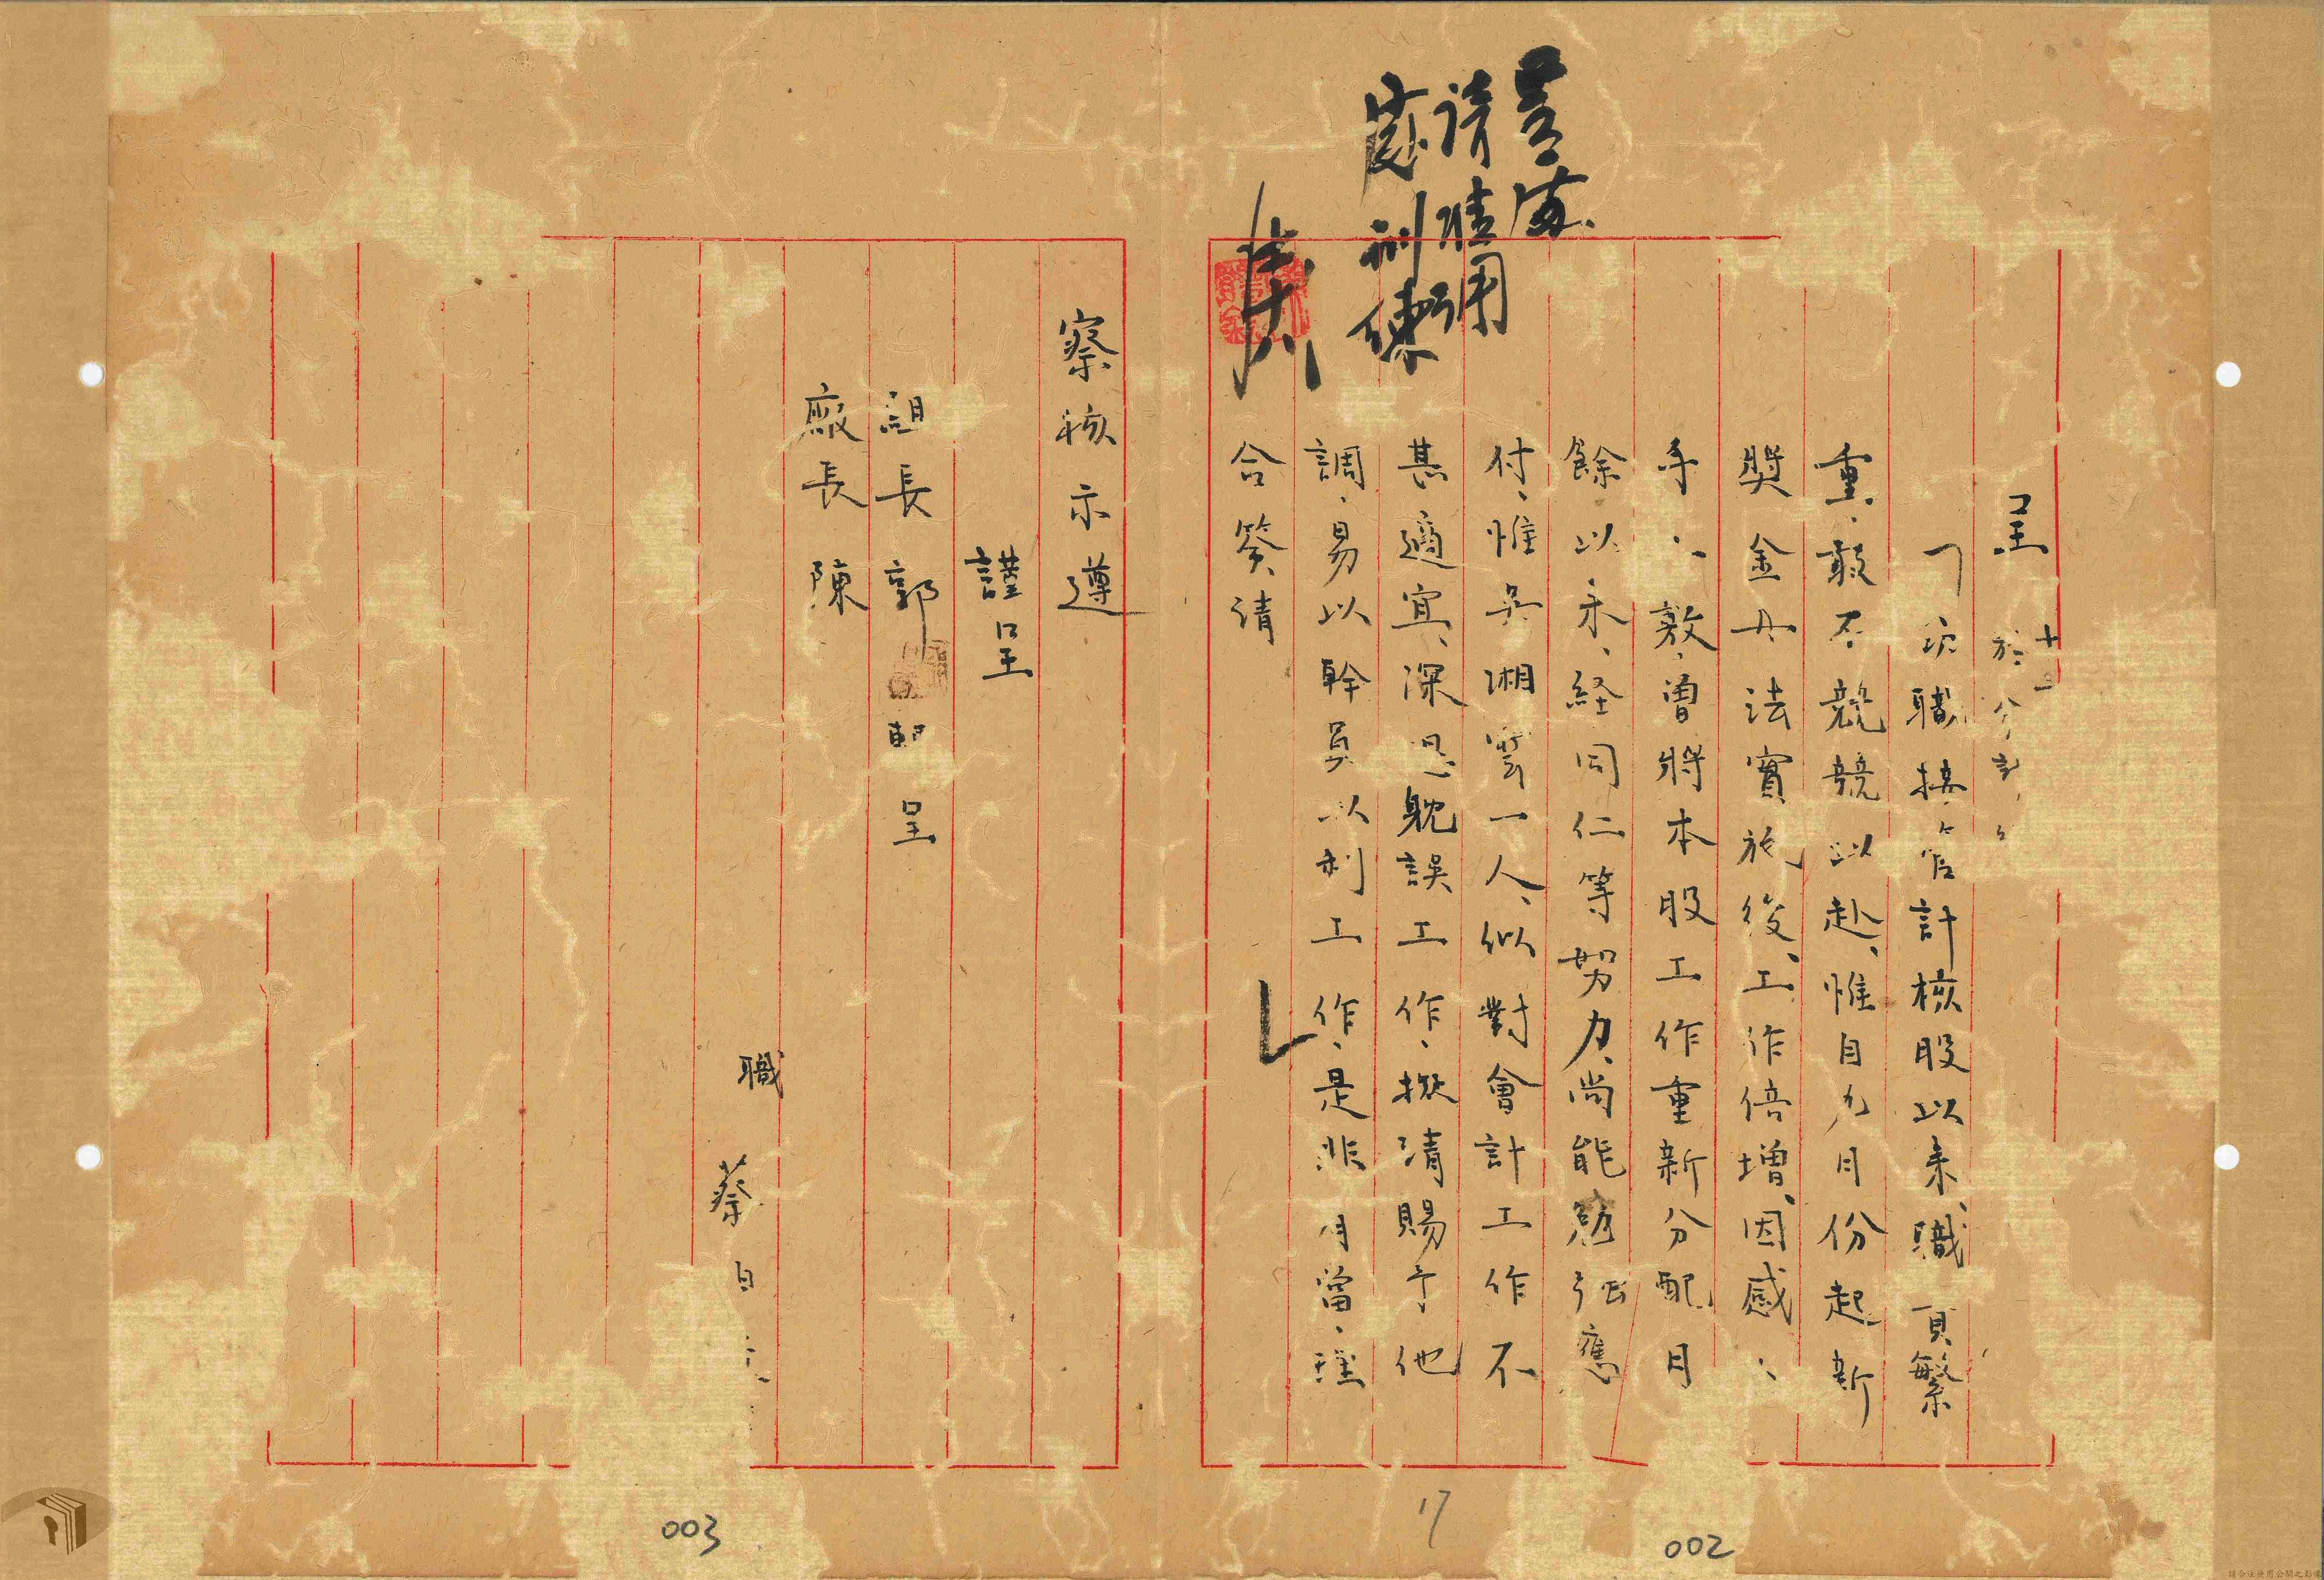 呈 於
職接管計核股以來、職責繁
重、敢不兢兢以赴、惟自九月份起新
獎金办法實施後、工作倍增、因感
手、敷、曾將本股工作重新分配月
餘以來、経同仁等努力、尚能勉強應
付、惟吳湘雲一人、似對會計工作不
甚適宜、深恐躭誤工作、擬請賜予他
調、易以幹員以利工作、是非有當、理
合簽請
請准調
訓練
察核示遵
謹呈
組長郭 轉呈
廠長陳
職 蔡
003
17
002